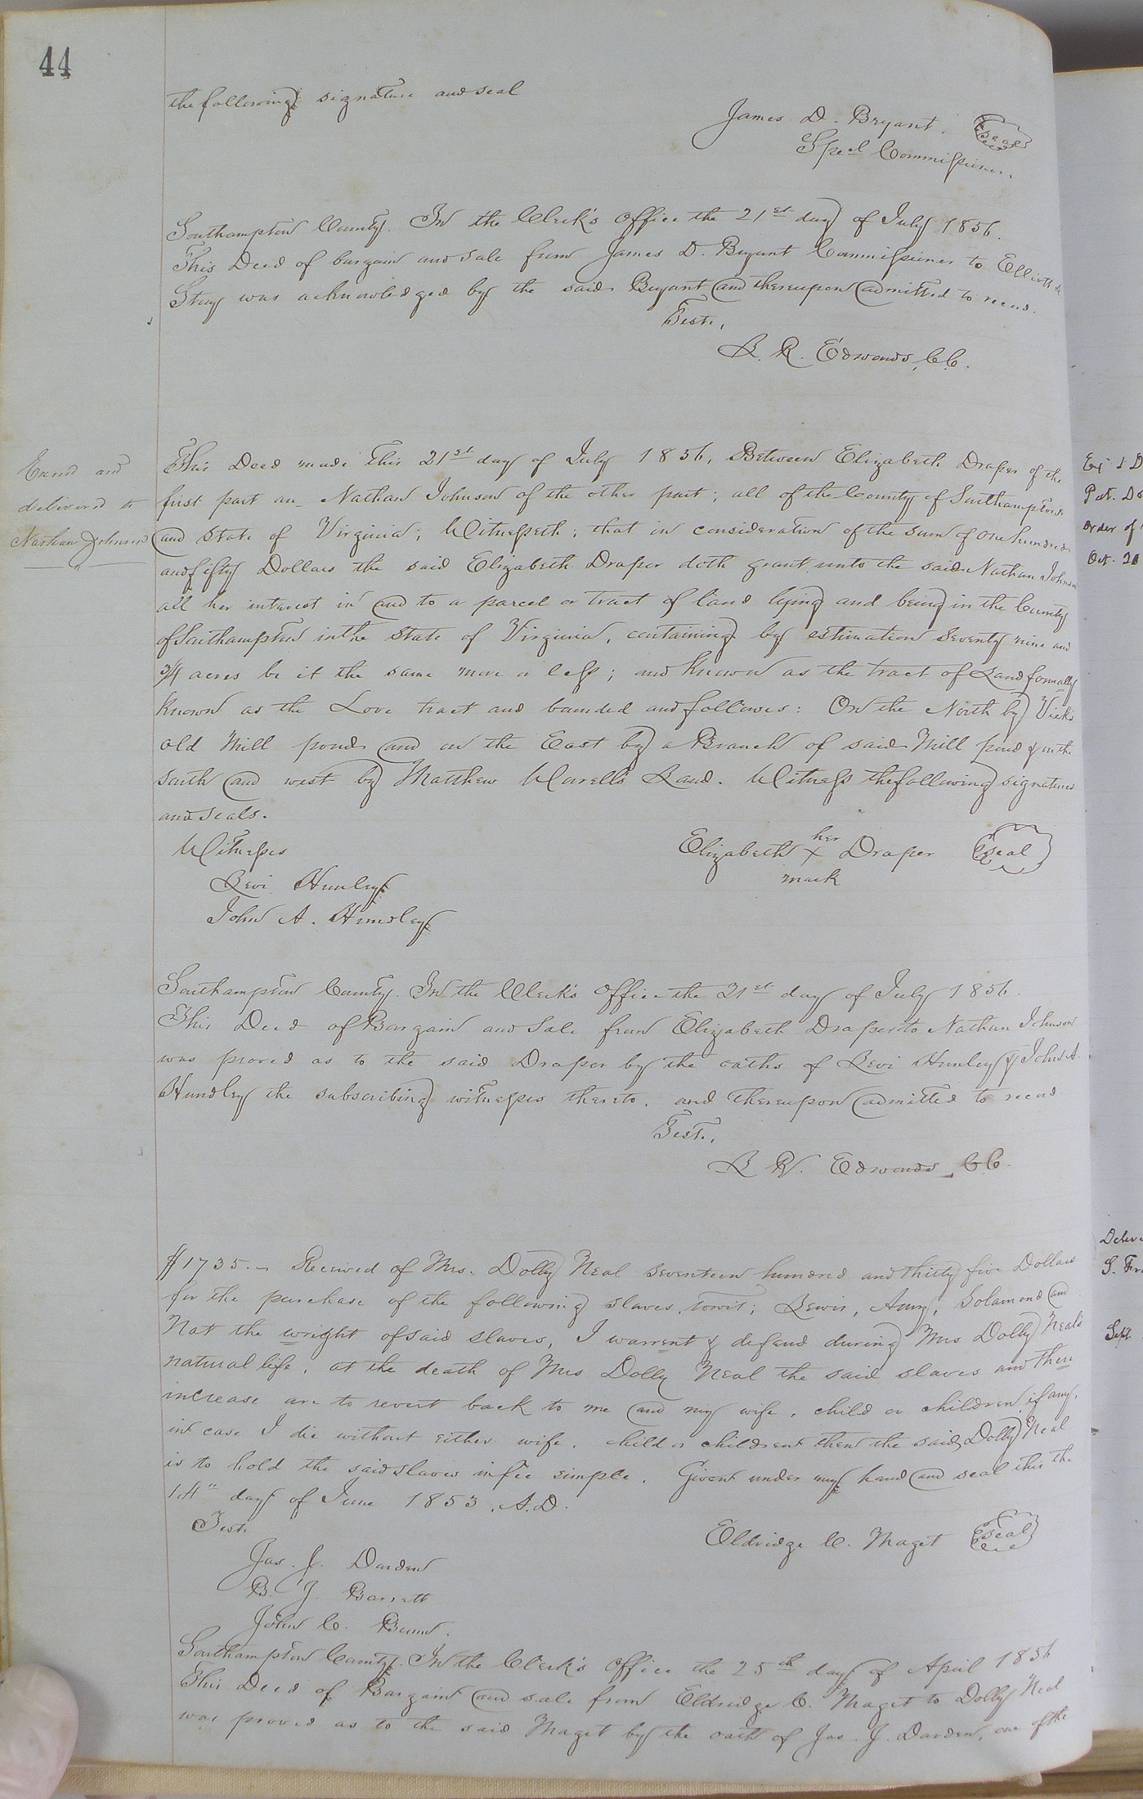 44
the following signature and seal
James D. Bryant. Seal
Specl Commissioner.
Southampton County. In the Clerk's Office the 21st day of July 1856.
This Deed of bargain and sale from James D. Bryant Commissioner to Elliott
Story was acknowledged by the said Bryant and thereupon admitted to record.
Teste,
L. R. Edwards, C.C.
Examd and
delivered to
Nathan Johnson
This Deed made this 21st day of July 1856, Between Elizabeth Draper of the
first part an Nathan Johnson of the other part; all of the County of Southampton
and State of Virginia; Witnesseth; that in consideration of the sum of One hundred
and fifty Dollars the said Elizabeth Draper doth grant unto the said Nathan Johnson
all her interest in and to a parcel or tract of land lying and being in the County
of Southampton in the State of Virginia, containing by estimation Seventy nine and
3/4 acres be it the same more or less; and known as the tract of Land formally
known as the Love tract and bounded and follows: On the North by Vick's
old Mill pond and on the East by a Branch of said Mill pond & on the
south and west by Matthew Worrell's Land. Witness the following signatures
and seals.
Witnesses
Elizabeth her X mark Draper Seal
Levi Hunley
John A. Hundley
Southampton County. In the Clerk's Office the 21st day of July 1856.
This Deed of Bargain and Sale from Elizabeth Draper to Nathan Johnson
was proved as to the said Draper by the oaths of Levi Hunley & John A.
Hundley the subscribing witnesses thereto, and thereupon admitted to record
Teste,
L. R. Edwards, C.C.
$1735.- Received of Mrs. Dolly Neal Seventeen hundred and thirty five Dollars
for the purchase of the following slaves, towit; Lewis, Amy, Solomond and
Nat the wright of said slaves, I warrent & defend during Mrs Dolly Neal's
natural life, at the death of Mrs Dolly Neal the said slaves and there
increase are to revert back to me and my wife, child or children if any,
in case I die without either wife, child or children then the said Dolly Neal
is to hold the said slaves in fee simple. Given under my hand and seal this the
14th day of June 1853. A.D.
Test.
Eldridge C. Maget Seal
Jas. J. Darden
B. J. Barrett
John C. Bunn.
Southampton County. In the Clerk's Office the 25th day of April 1856
This Deed of Bargain and sale from Eldridge C. Maget to Dolly Neal
was proved as to the said Maget by the oath of Jas. J. Darden, one of the